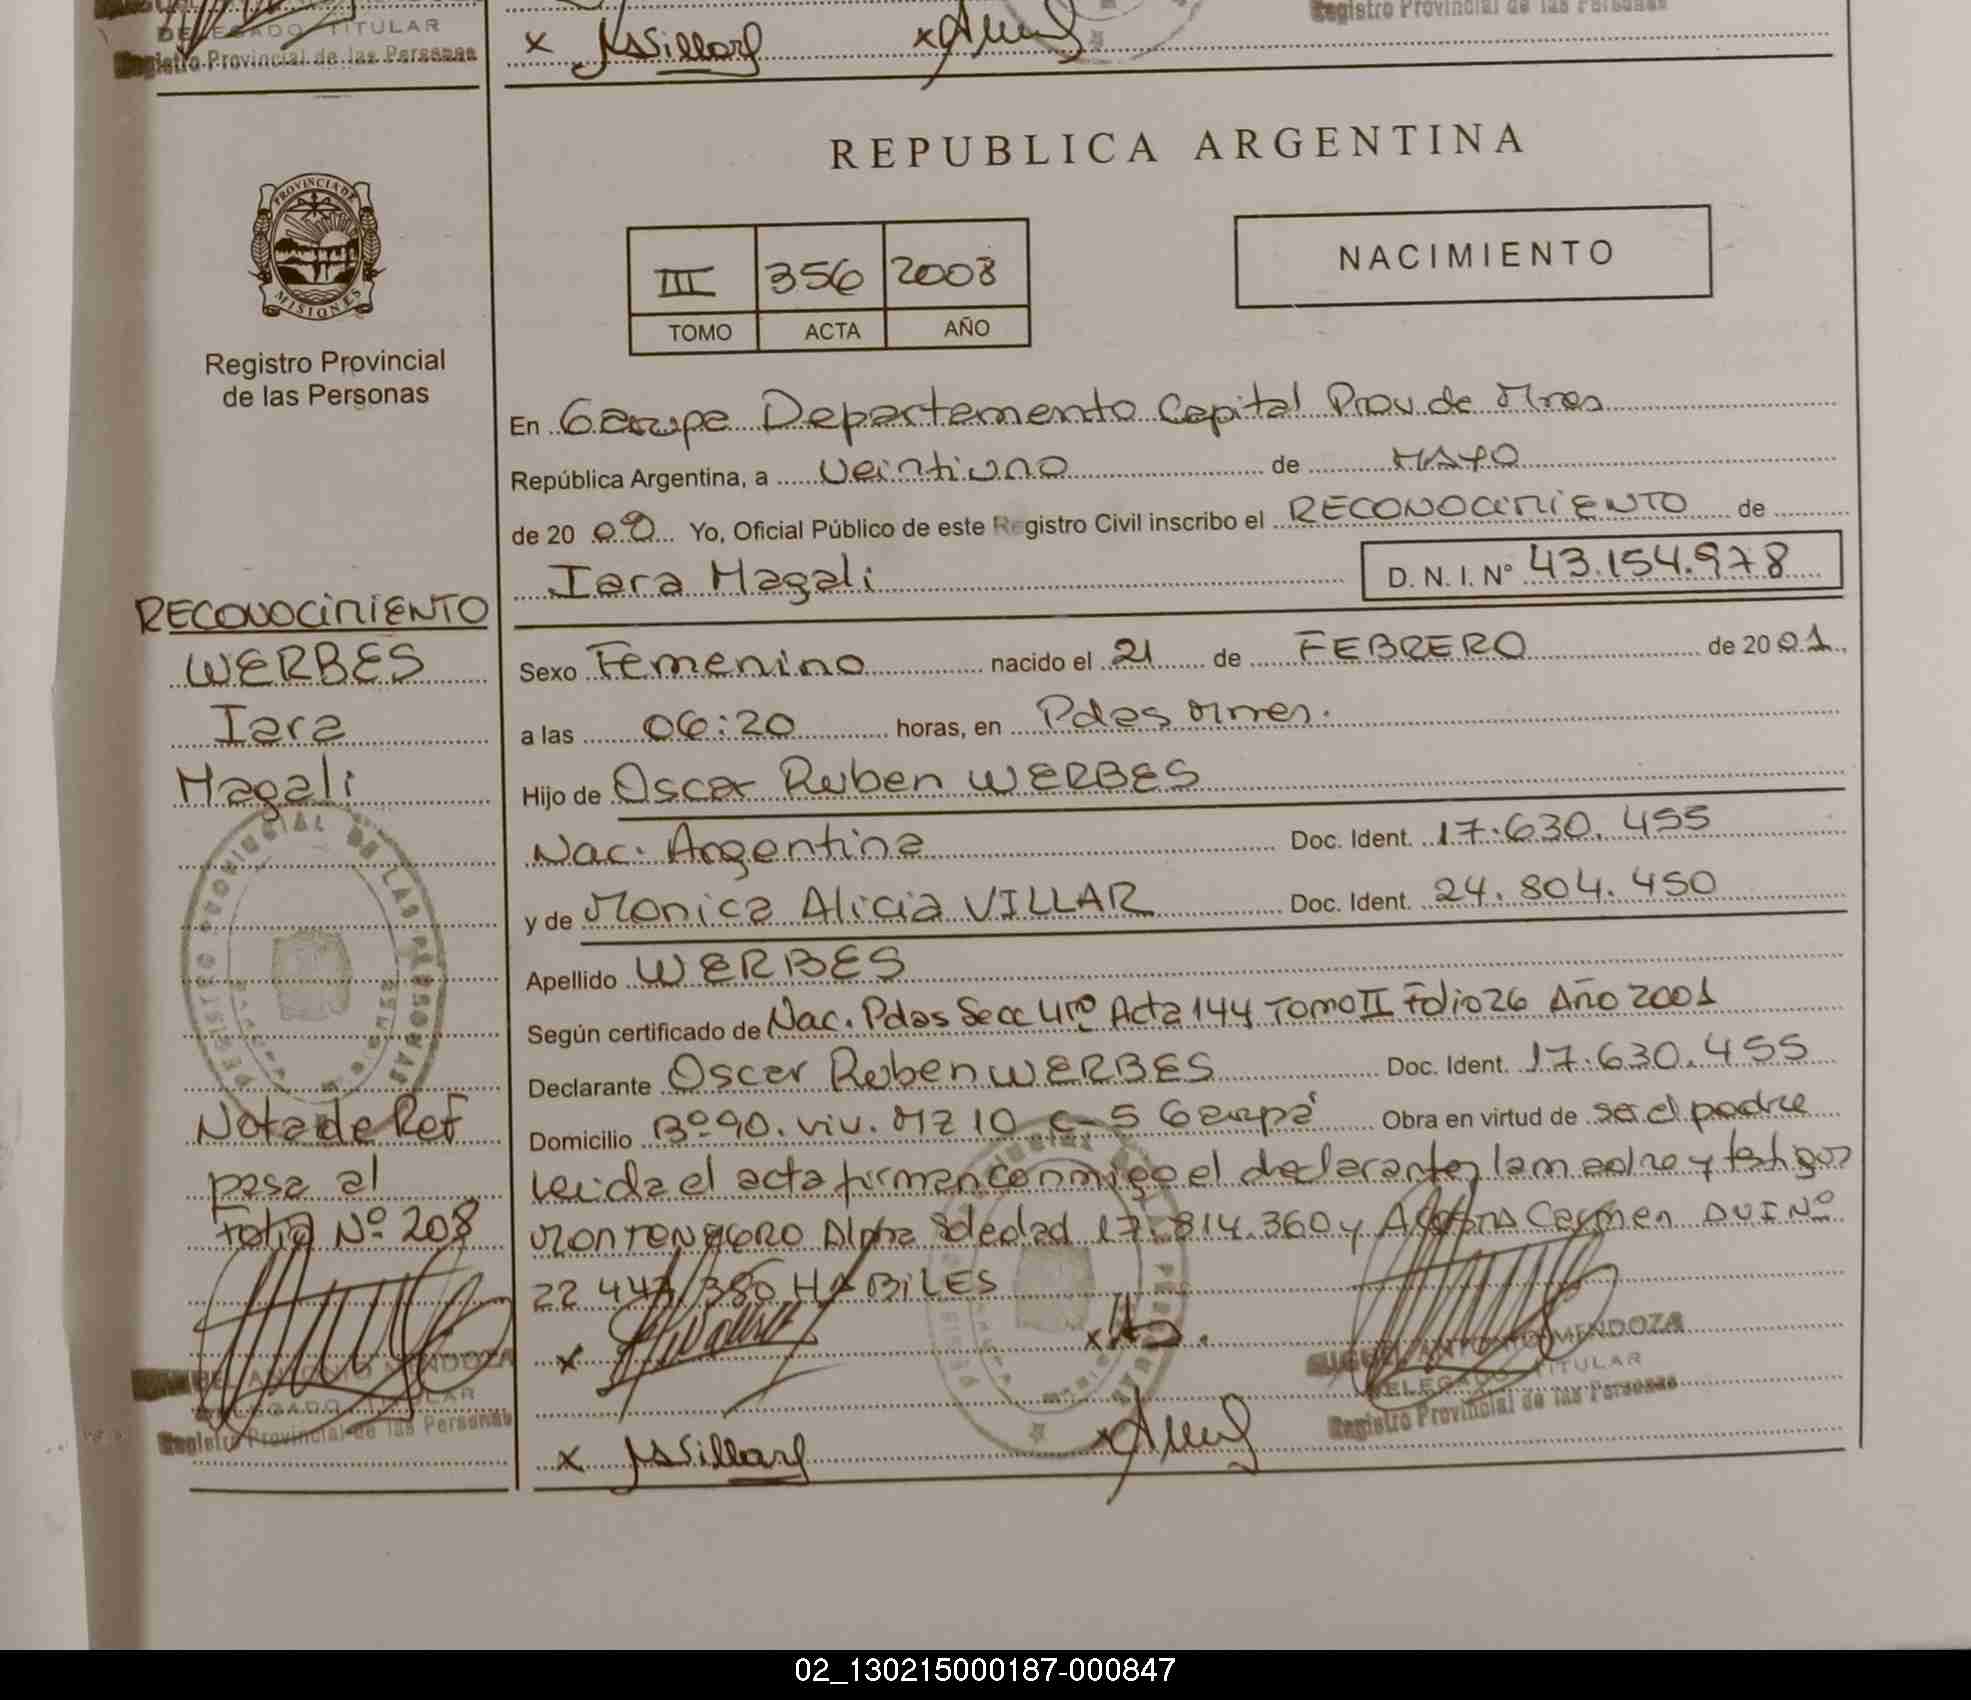 DELEGADO TITULAR
Registro Provincial de las Personas
x MVillar x
Registro Provincial de las Personas
REPUBLICA ARGENTINA
PROVINCIA DE
MISIONES
Registro Provincial
de las Personas
III 356 2008
TOMO ACTA AÑO
NACIMIENTO
En Garupa Departamento Capital Prov de Mnes
República Argentina, a veintiuno de MAYO
de 20 09 Yo, Oficial Público de este Registro Civil inscribo el RECONOCIMIENTO de
Iara Magali D. N. I. Nº 43.154.978
RECONOCIMIENTO
WERBES
Iara
Magali
Sexo Femenino nacido el 21 de FEBRERO de 20 01
a las 06:20 horas, en Pdas Mnes.
Hijo de Oscar Ruben WERBES
Nac. Argentina Doc. Ident. 17.630.455
y de Monica Alicia VILLAR Doc. Ident. 24.804.450
Apellido WERBES
Según certificado de Nac. Pdas Secc 4ta Acta 144 Tomo II Folio 26 Año 2001
Declarante Oscar Ruben WERBES Doc. Ident. 17.630.455
Domicilio Bº 90. viv. MZ 10 C-5 Garupá Obra en virtud de ser el padre
Leida el acta firman conmigo el declarante, la madre y testigos
MONTENEGRO Alpha Soledad 17.814.360 y Acosta Carmen DUI Nº
22 44 386 HABILES
x x
x MVillar x
Nota de Ref
pasa al
Folio Nº 208
REGISTRO PROVINCIAL DE LAS PERSONAS
MIGUEL ANTONIO MENDOZA
DELEGADO TITULAR
Registro Provincial de las Personas
MIGUEL ANTONIO MENDOZA
DELEGADO TITULAR
Registro Provincial de las Personas
02_130215000187-000847